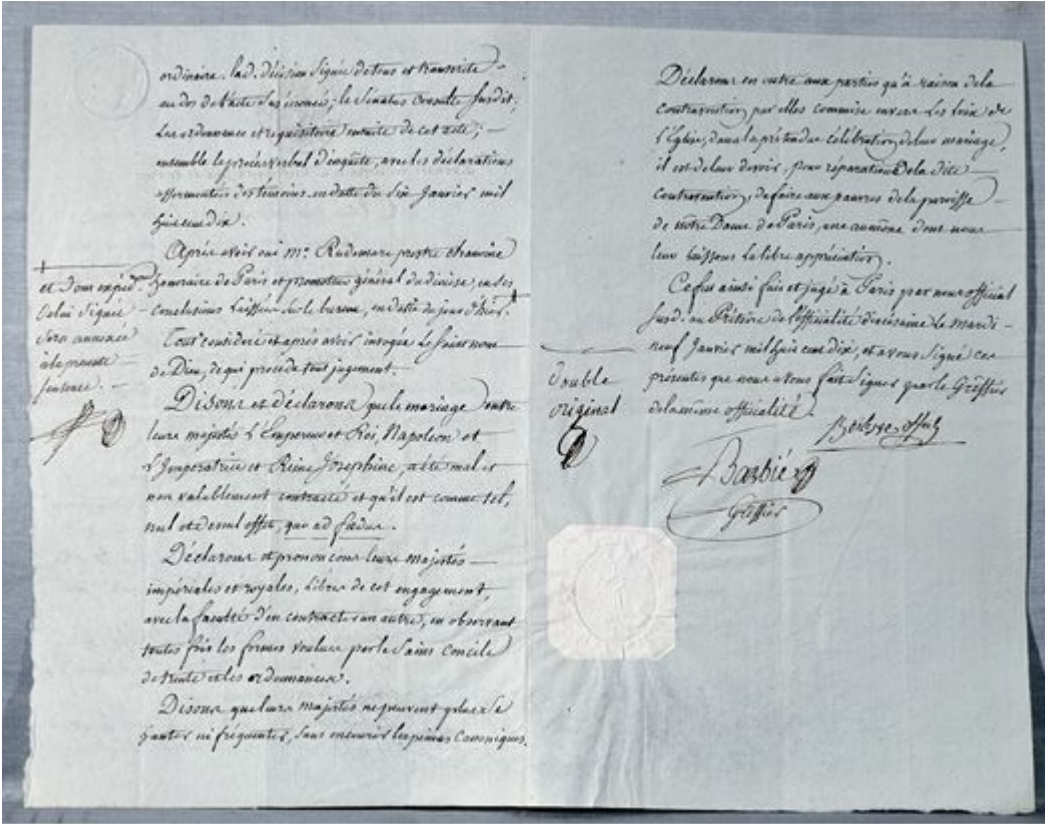 ordinaire. lad. décision signée de tous et transcrite
au dos de l'acte sus énoncé; le Senatus Consulte susdit,
Les ordonnances et requisitoire ensuite de cet acte;
ensemble le procès verbal d'enquête, avec les déclarations
assermentées des témoins, en datte du six Janvier mil
huit cent dix.
Après avoir oui Mr. Rudemare prêtre chanoine
honoraire de Paris et promoteur général du diocèse, en ses
conclusions laissées sur le bureau, en datte du jour d'hier.
Tout considéré et après avoir invoqué le saint nom
de Dieu, de qui procède tout jugement.
Disons et déclarons que le mariage entre
leurs majestés L'Empereur et Roi, Napoleon et
L'Imperatrice et Reine Josephine, a été mal et
non valablement contracté et qu'il est comme tel,
nul et de nul effet, quo ad fœdus.
Déclarons et prononçons leurs majestés
impériales et royales, libres de cet engagement,
avec la faculté d'en contracter un autre, en observant
toutes fois les formes voulues par le Saint Concile
de trente et les ordonnances.
Disons que leurs majestés ne peuvent plus se
hanter ni fréquenter, sans encourir les peines Canoniques.
et dont expédon
Celui signée
sera annexée
à la présente
sentence.
Déclarons en outre aux parties qu'à raison de la
contravention, par elles commise envers Les loix de
l'Eglise, dans la prétendue célébration de leur mariage,
il est de leur devoir, pour réparation de la dite
Contravention, de faire aux pauvres de la paroisse
de nôtre Dame de Paris, une aumône dont nous
leur laissons la libre appréciation.
Ce fut ainsi fait et jugé à Paris par nous official
susd. au Prétoire de l'officialité diocésaine Le mardi
neuf Janvier mil huit cent dix, et avons signé ces
présentes que nous avons fait signer par le Greffier
de la même officialité.
double
original
Barbié
Greffier